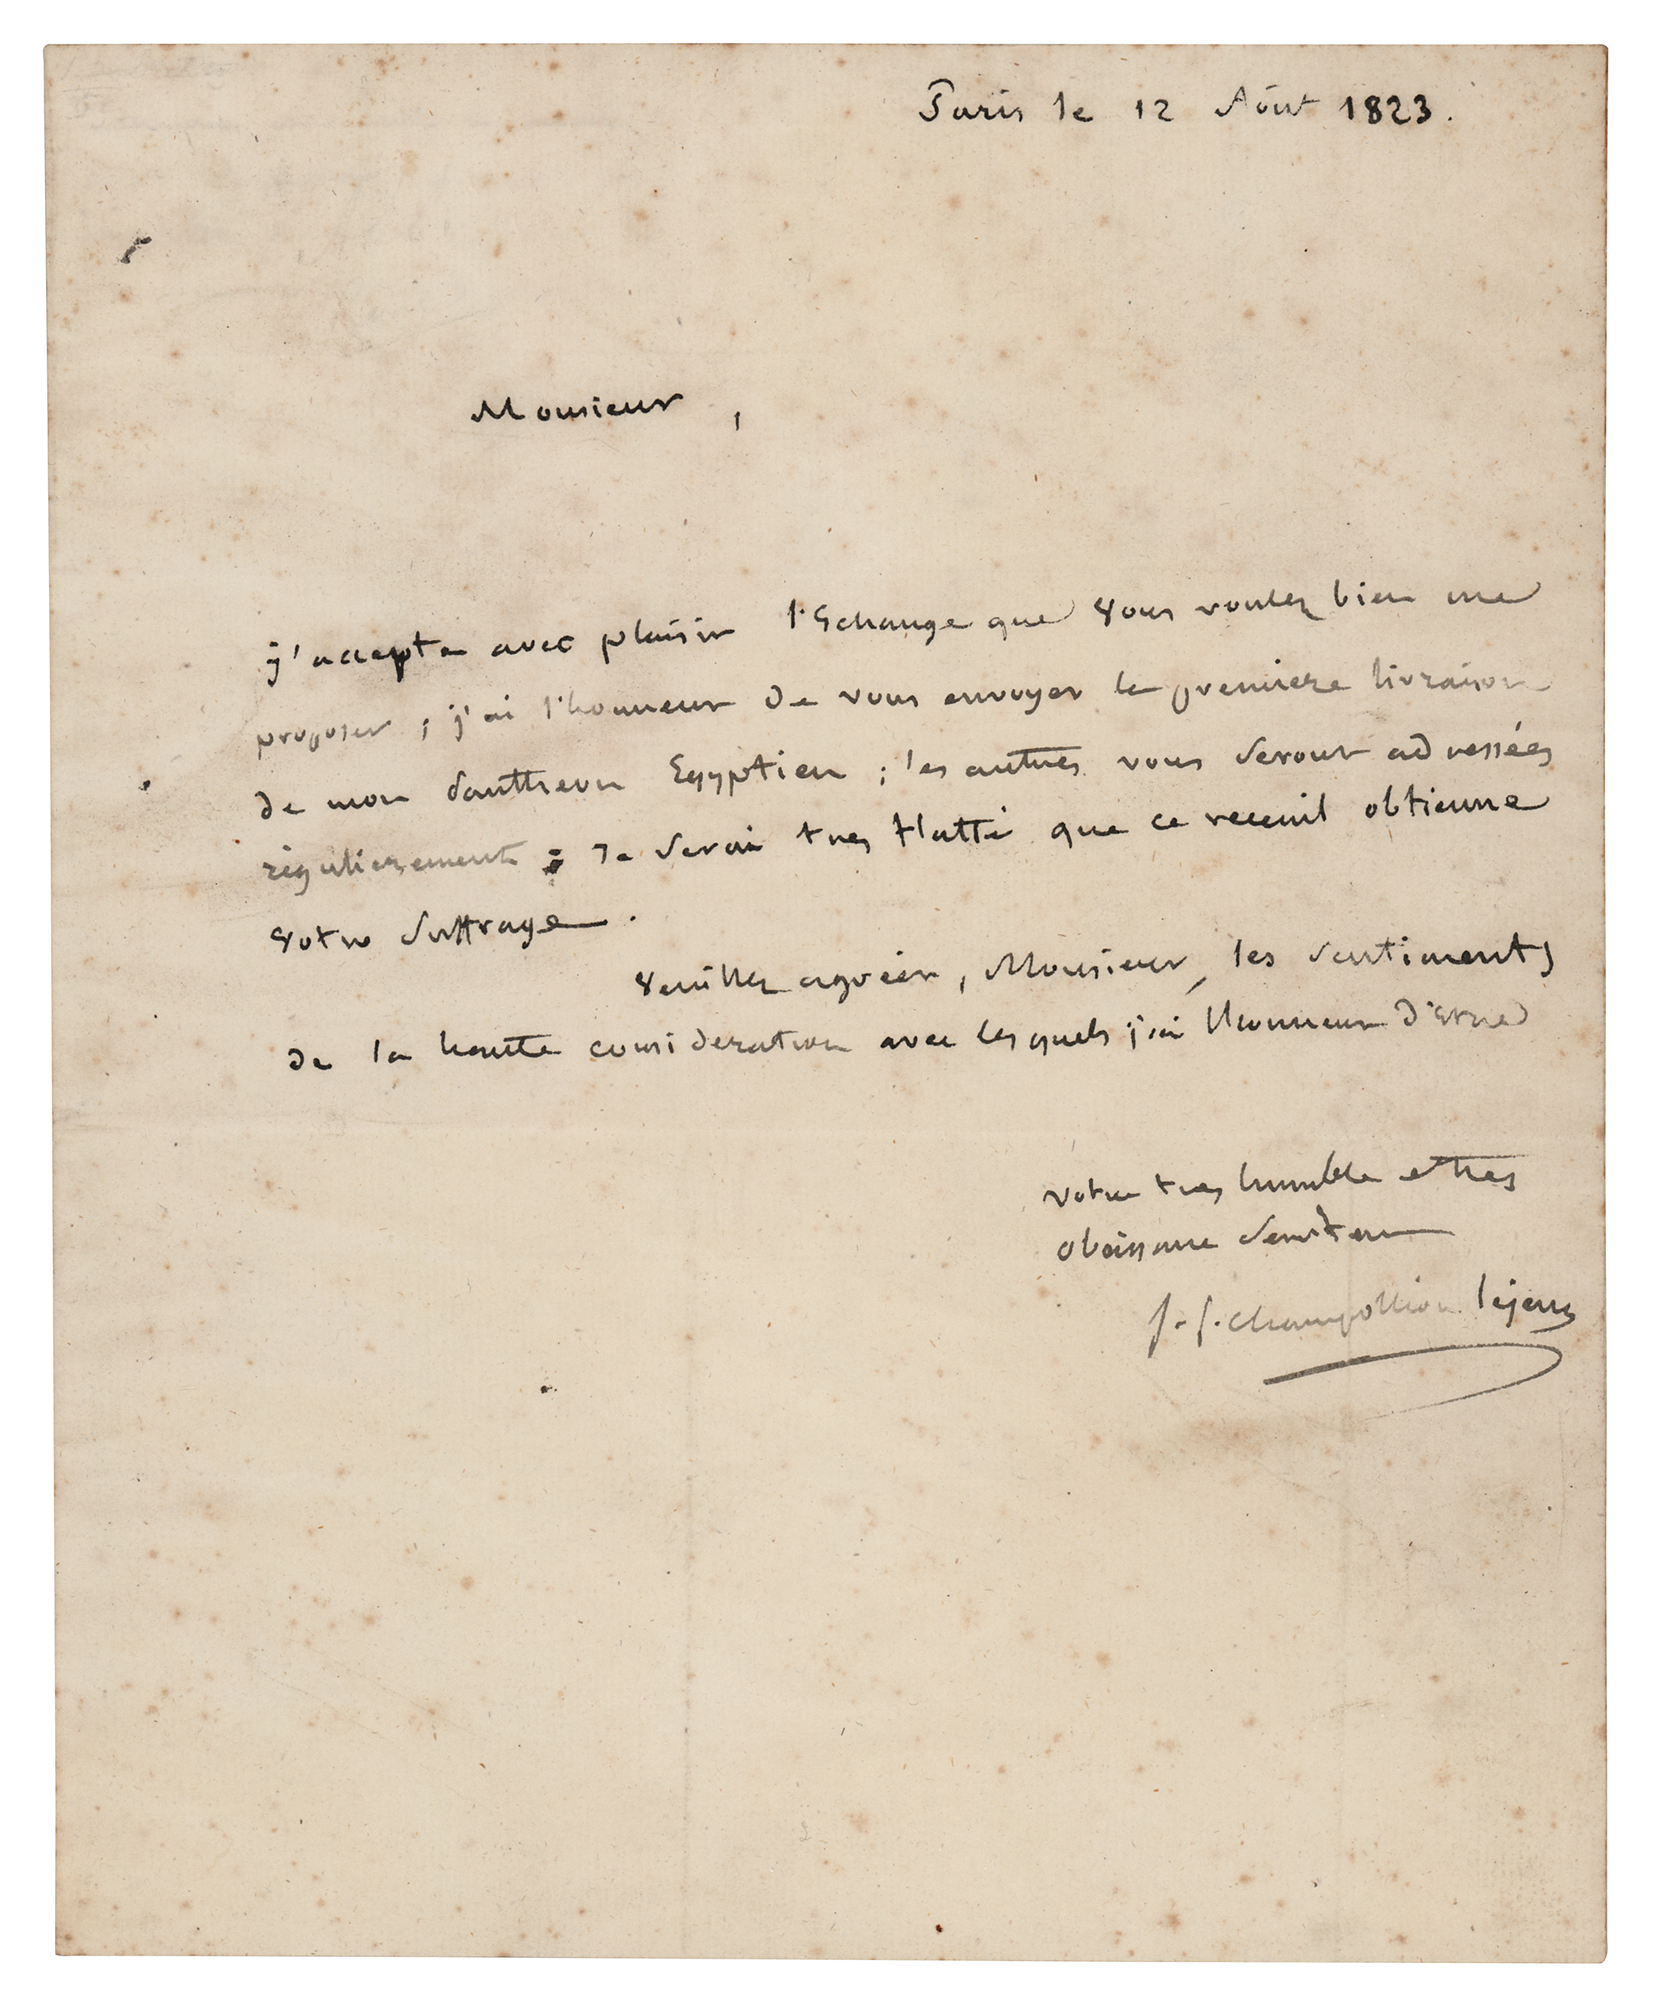 Paris le 12 Août 1823.
Monsieur,
j'accepte avec plaisir l'Echange que vous voulez bien me
proposer; j'ai l'honneur de vous envoyer la premiere livraison
de mon Panthéon Egyptien; les autres vous seront adressées
régulierement; Je serai très flatté que ce receuil obtienne
votre suffrage.
Veuillez agréer, Monsieur, les sentiments
de la haute consideration avec lesquels j'ai l'honneur d'Etre
votre tres humble et tres
obeissant serviteur
J. f. Champollion lejeune